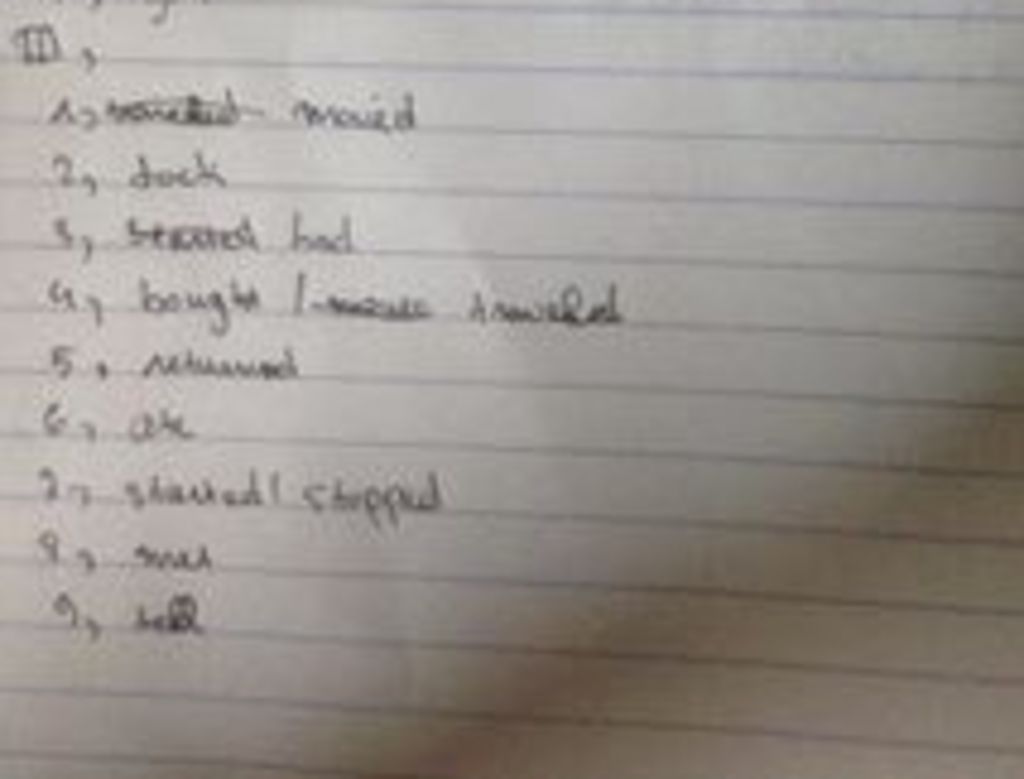 III,
1, moved
2, took
3, had
4, bought / traveled
5, returned
6, ate
7, started / stopped
8, met
9,